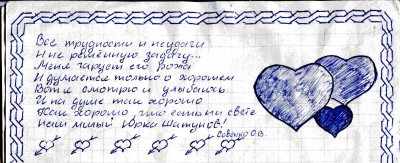 Все трудности и неудачи
И не решённую задачу...
Меня чарует его рожа
И думается только о хорошем
Вот я смотрю и улыбаюсь
И на душе так хорошо
Как хорошо, что есть на свете
Наш милый Юрка Шатунов!
Савенко О.В.